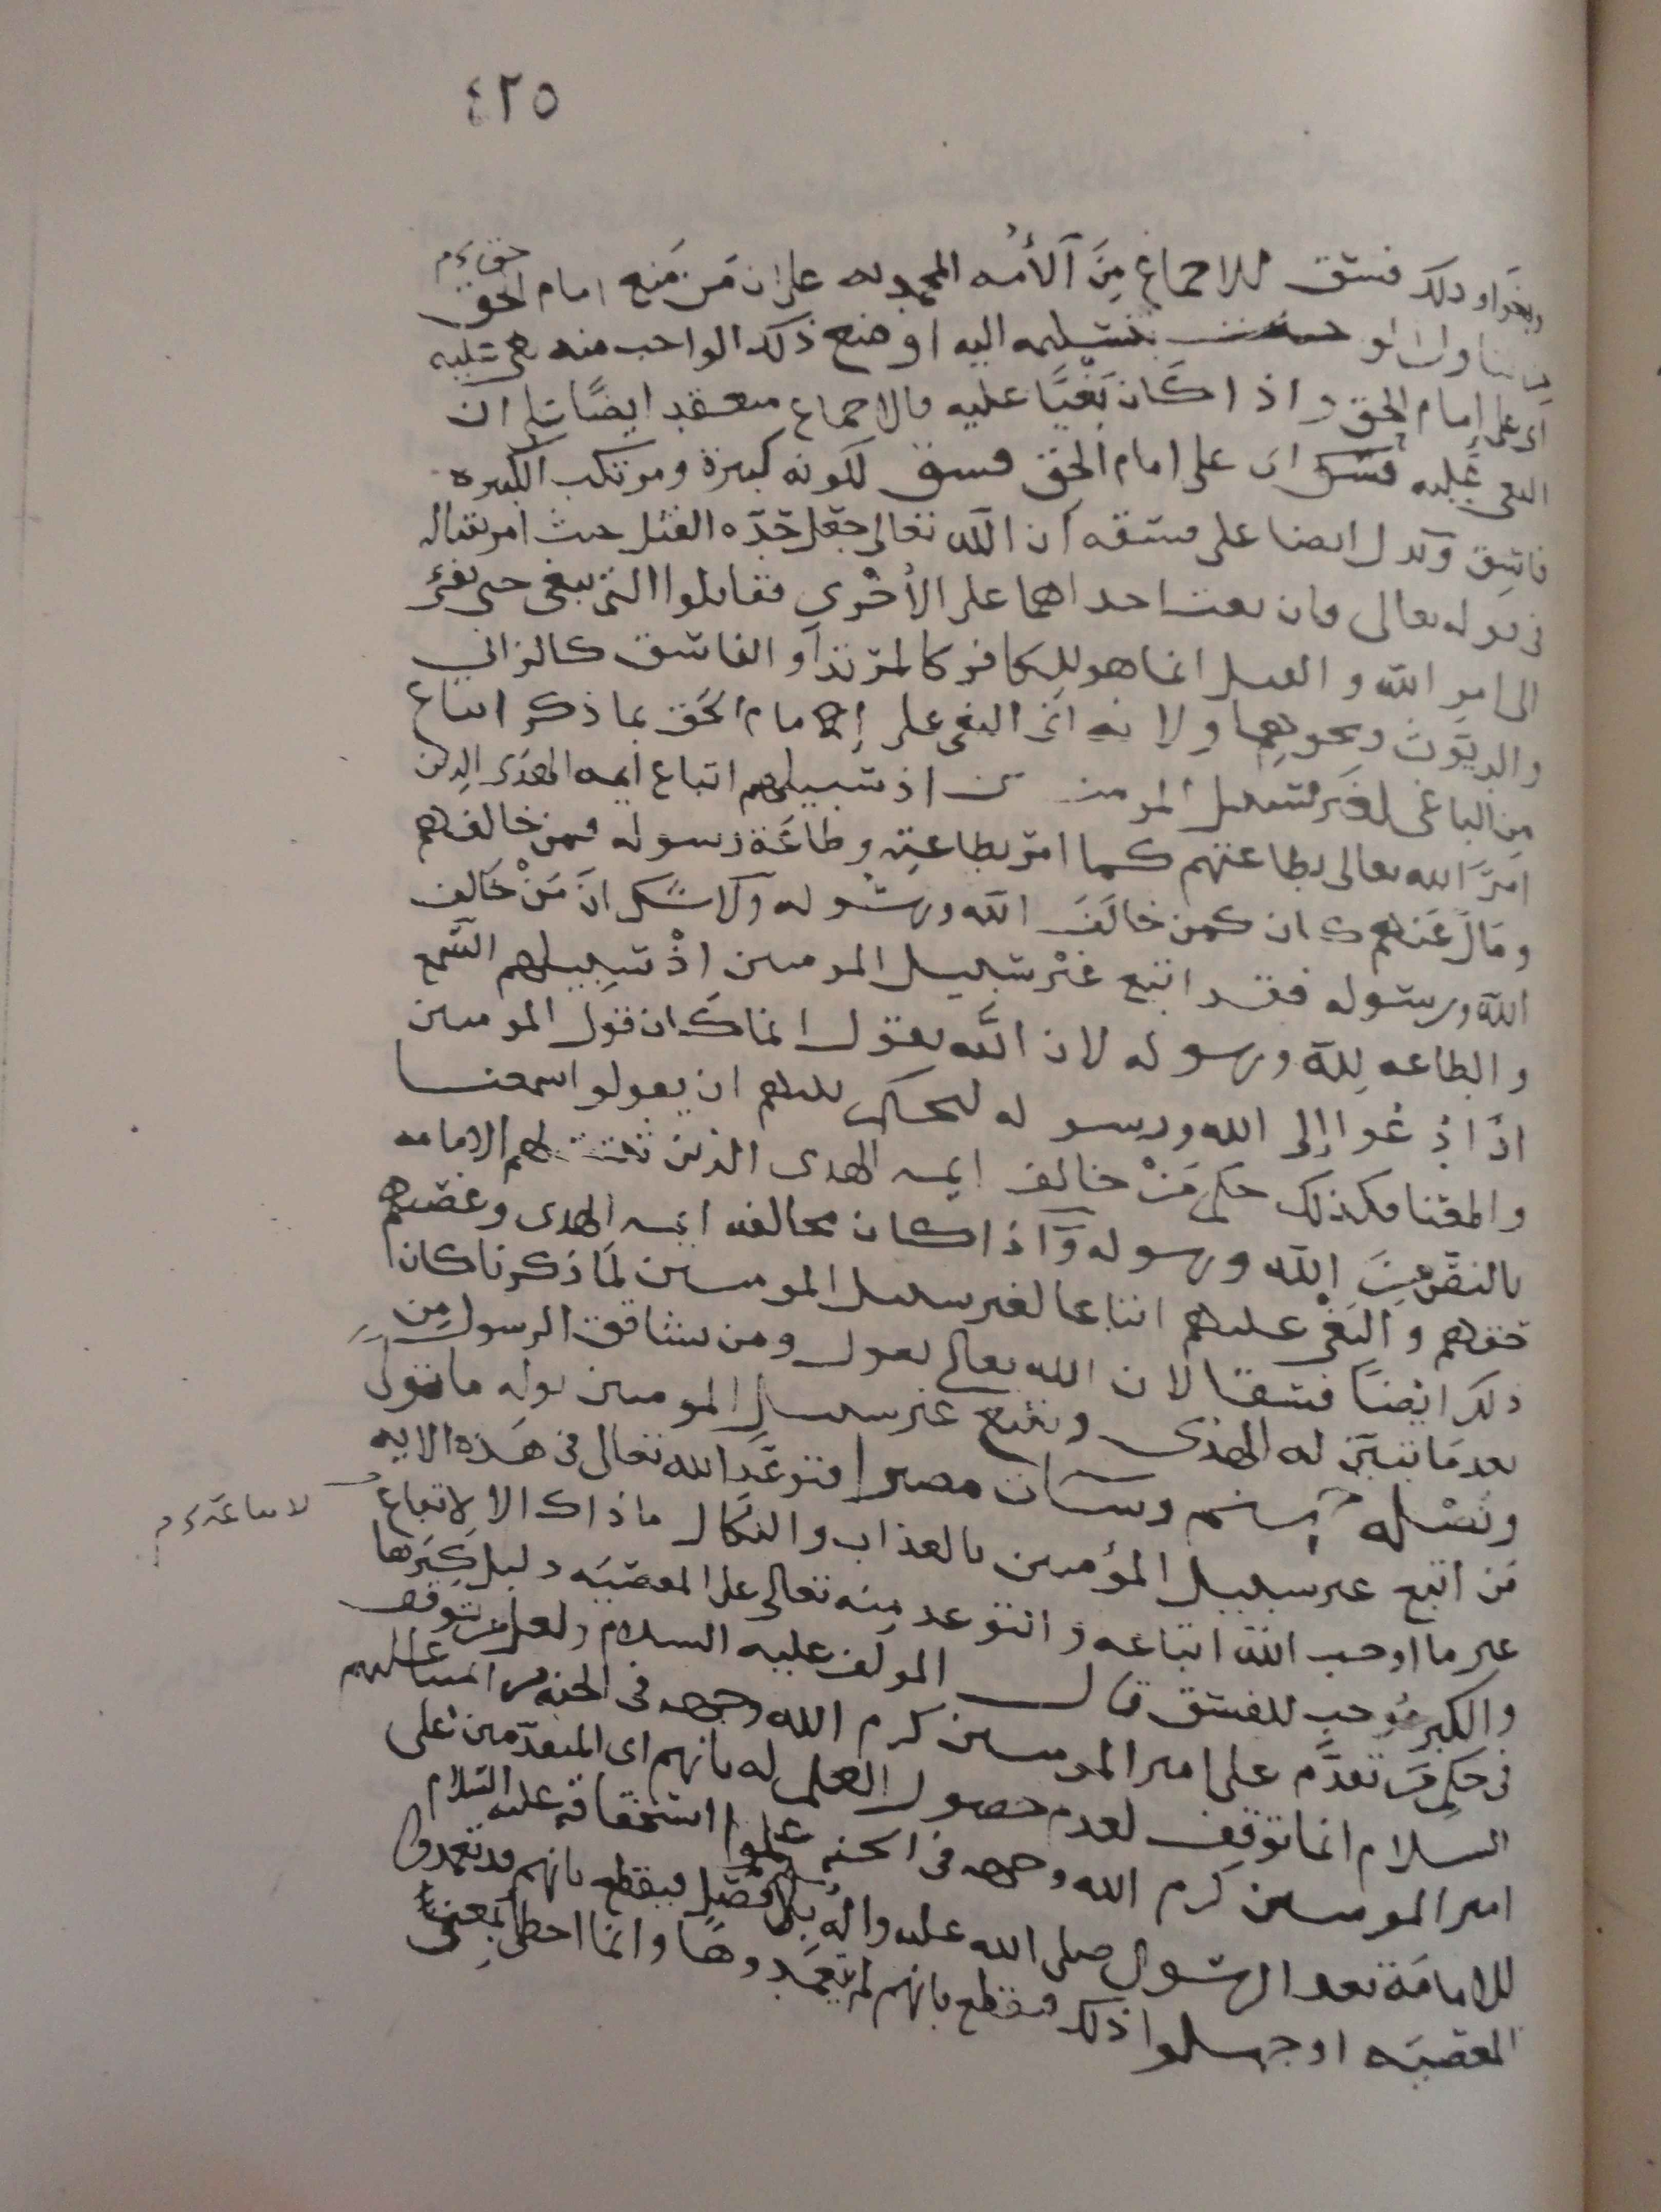 ٤٢٥
حق ءم
ونحوا ودلك فسق للاجماع مِنَ الأمه المحمديه على ان مَن مَنع امام الحق
واجب تسليمه اليه او منع ذلك الواجب منه بغى عليه
اى على امام الحق واذا كان بَغيًا عليه فالاجماع منعقد ايضًا على ان
البغى عليه اى على امام الحق فسق لكونه كبيرة ومرتكب الكبيره
فاسق ويدل ايضا على فسقه ان الله تعالى جعل حَدّه القتل حيث امر بقتاله
فى قوله تعالى فان بغت احداهما على الأخرى فقاتلوا التى تبغى حتى تفىء
الى امر الله والقتل انما هو للكافر كالمرتد او الفاسق كالزانى
والديّوث ونحوهما ولانه اى البغى على إمام الحق بما ذكر اتباع
مِن الباغى لغَير سبيل المومنين اذ سبيلهم اتباع ايمه الهدى الذين
امرَ الله تعالى بطاعتهم كما امر بطاعتِه وطاعَة رسوله فمن خالفهم
ومَال عَنهم كان كمن خالَفَ الله ورسوله ولا شك انَّ مَنْ خَالف
الله ورسوله فقد اتبع غَيْر سَبيل المومنين اذْ سَبيلهم السَّمع
والطاعه لله ورسوله لان الله يقول انما كان قول المومنين
اذا دُعوا إلى الله ورسوله ليحكم بينهم ان يقولوا سمعنا
واطعنا فكذلك حكم مَنْ خالف ايمه الهدى الذين ثبتت لهم الامامه
بالنصّ مِنَ الله ورسوله وَاذا كان مخالفه ايمه الهدى وغصبهم
حقهم والبغْى عليهم اتباعا لغير سبيل المومنين لما ذكرنا كان
ذلك ايضًا فسقا لان الله تعالى يقول ومن يشاقق الرسول مِن
بعد مَا تبيّن له الهدى ويتبع غير سبيل المومنين نوله ما تولى
ونصْله جهنم وساءت مصيرا فتوعَّد الله تعالى فى هَذه الايه
مَن اتبع غير سبيل المؤمنين بالعذاب والنكَال ماذاك الا لاتباع
لاتباعه ءم
غير ما اوجب الله اتباعه والتوعد مِنه تعالى على المعصيَه دليل كِبَرها
والكبر مُوجب للفسق قال المولف عليه السلام ولعل من توقف
فى حكم مَن تقدَّم على امير المومنين كرم الله وجهه فى الجنه من ائمتنا عليهم
السلام انما توقف لعدم حصول العلم له بانهم اى المتقدّمين على
امير المومنين كرم الله وجهه فى الجنه علموا استحقاقه عليه السَّلام
للامامَة بعد الرسول صلى الله عليه واله بلا فصْل فيقطع بانهم قد تعمدوا
المعصيَه او جهلوا ذلك فيقطع بانهم لم يتعمَّدوهَا وانما اخطوا